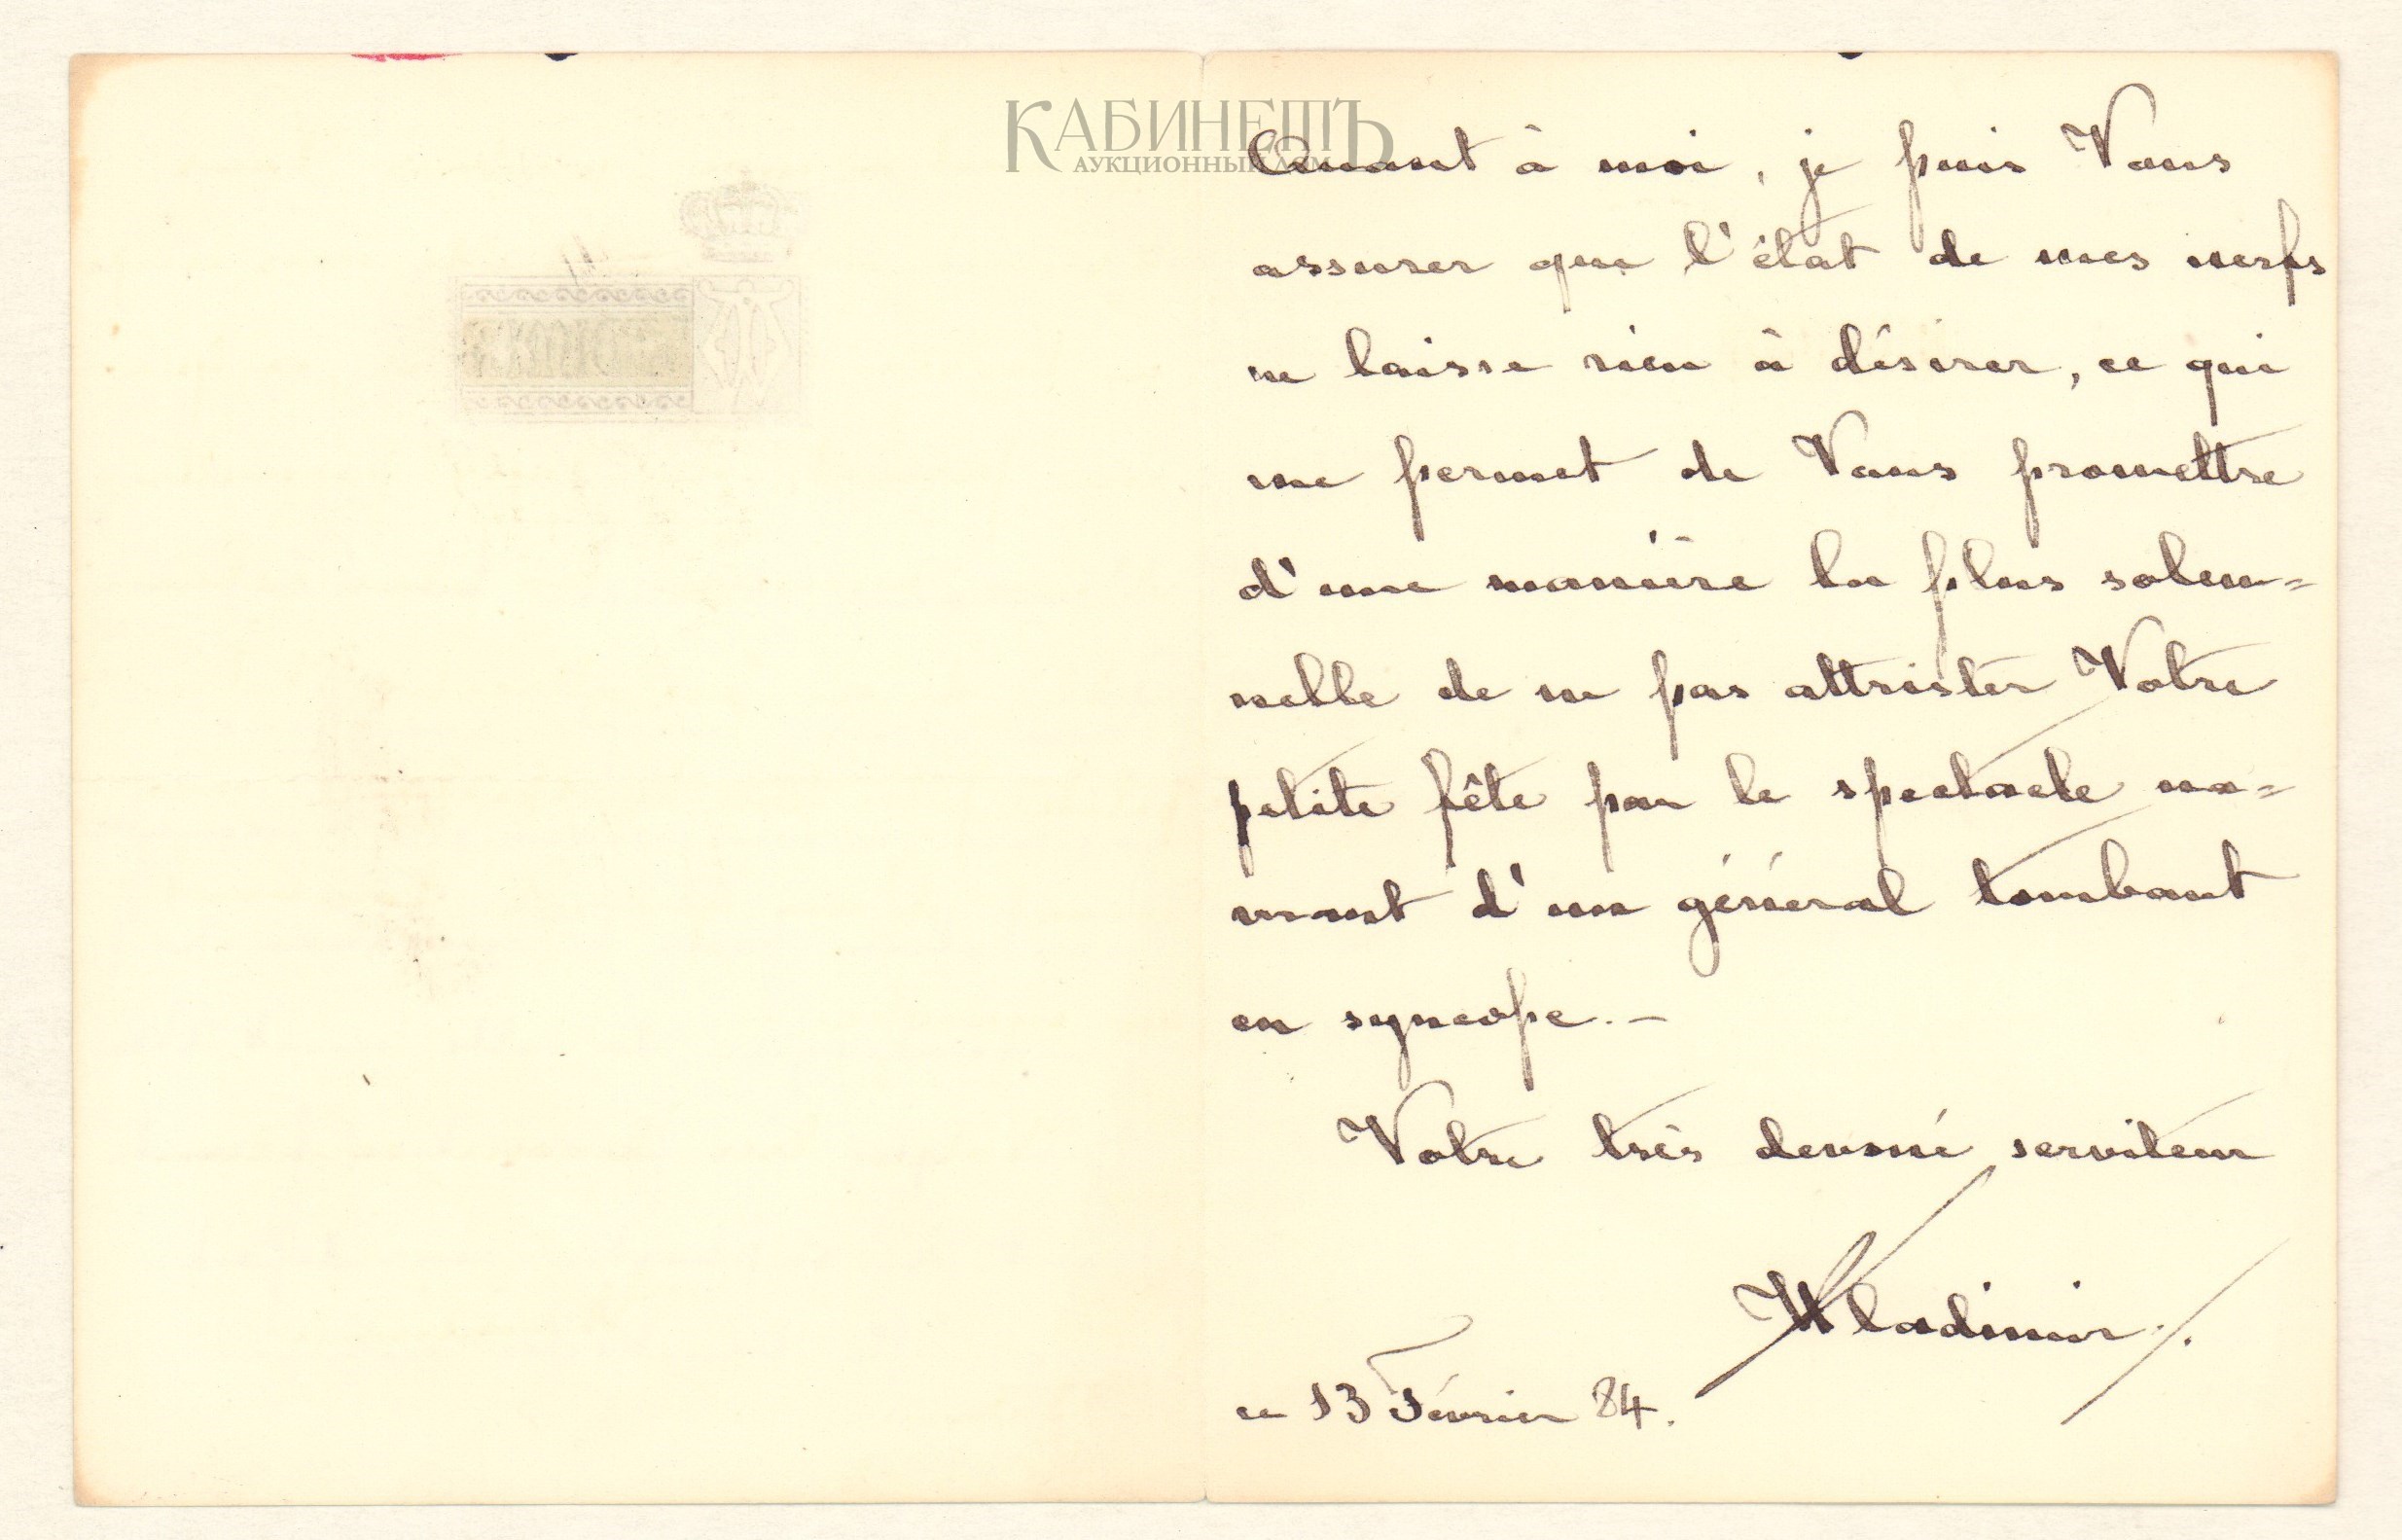 КАБИНЕТЪ
АУКЦИОННЫЙ ДОМ
Quant à moi, je puis Vous
assurer que l'état de mes nerfs
ne laisse rien à désirer, ce qui
me permet de Vous promettre
d'une manière la plus solen=
nelle de ne pas attrister Votre
petite fête par le spectacle na=
vrant d'un général tombant
en syncope.—
Votre très devoué serviteur
Wladimir.
ce 13 Février 84.